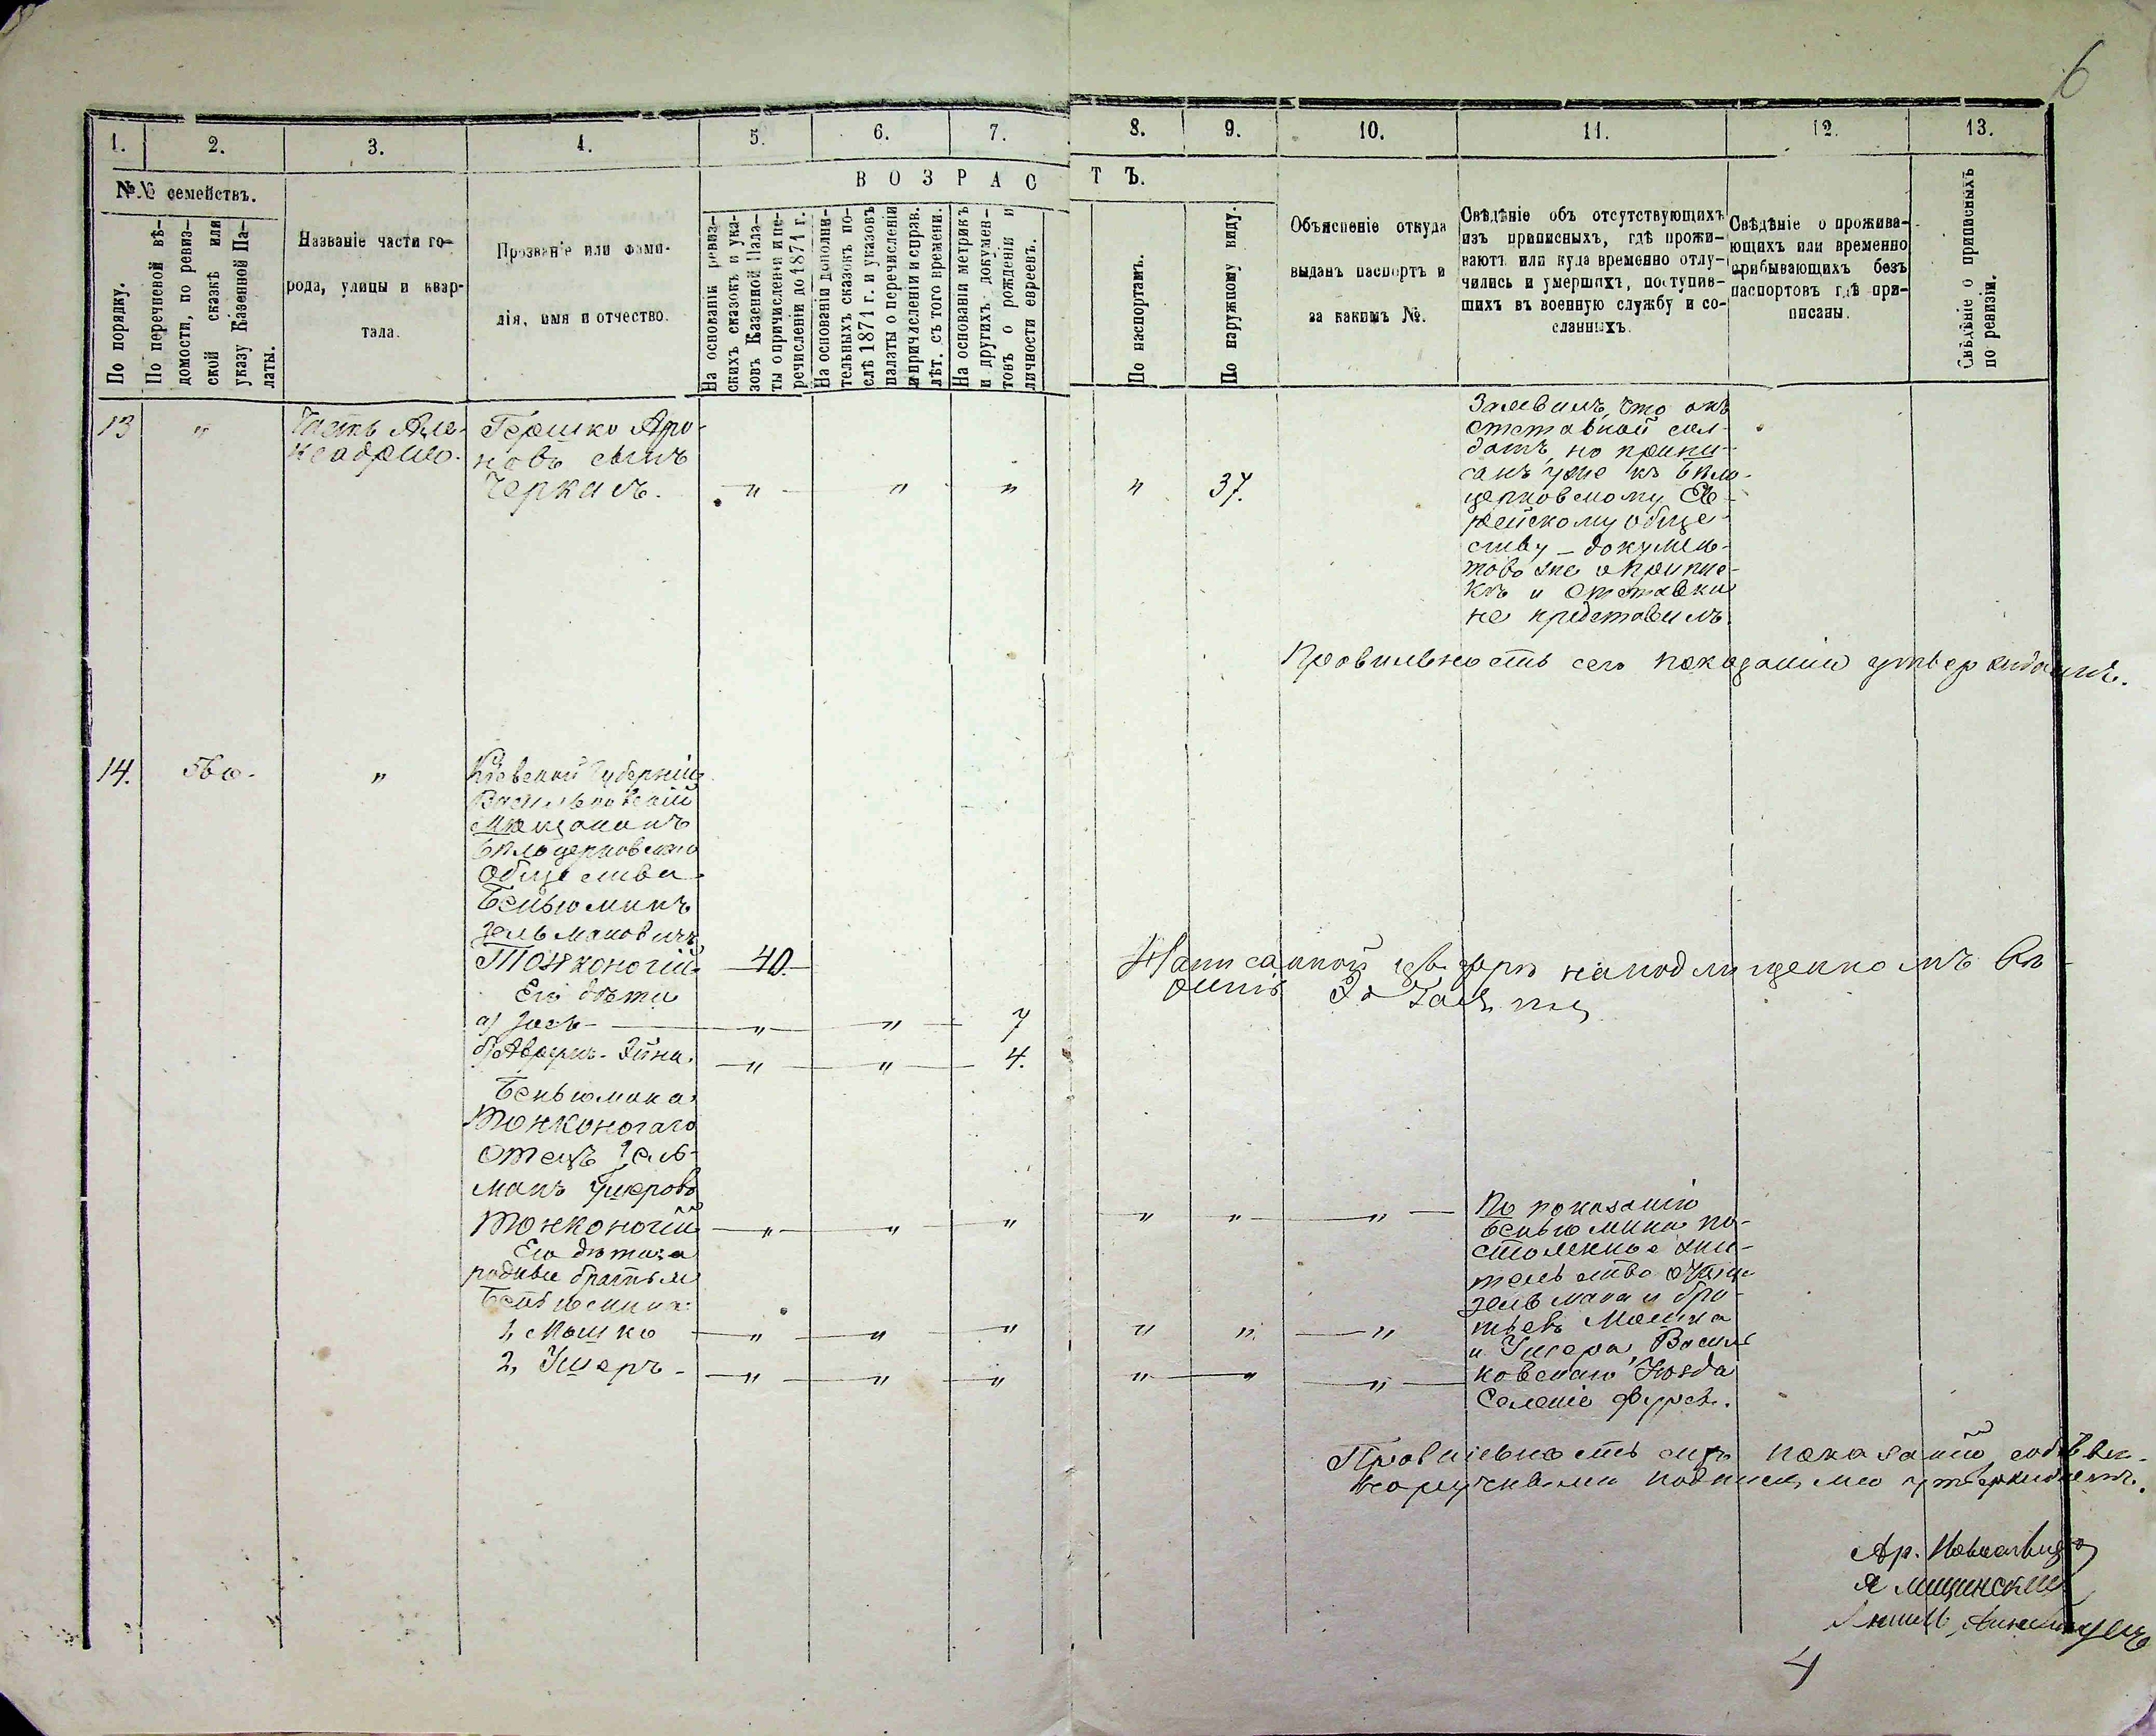 6
1. 2. 3. 4. 5. 6. 7. 8. 9. 10. 11. 12. 13.
№№ семействъ.
В О З Р А С Т Ъ.
По порядку.
По перечневой вѣ-
домости, по ревиз-
ской сказкѣ или
указу Казенной Па-
латы.
Названіе части го-
рода, улицы и квар-
тала.
Прозваніе или фами-
лія, имя и отчество.
На основаніи ревиз-
скихъ сказокъ и ука-
зовъ Казенной Пала-
ты о причисленіи и пе-
речисленіи до 1871 г.
На основаніи дополни-
тельныхъ сказокъ по-
слѣ 1871 г. и указовъ
палаты о перечисленіи
и причисленіи и справ.
лѣт. съ того времени.
На основаніи метрикъ
и другихъ докумен-
товъ о рожденіи и
личности евреевъ.
По паспортамъ.
По наружному виду.
Объясненіе откуда
выданъ паспортъ и
за какимъ №.
Свѣдѣніе объ отсутствующихъ
изъ приписныхъ, гдѣ прожи-
ваютъ или куда временно отлу-
чились и умершихъ, поступив-
шихъ въ военную службу и со-
сланныхъ.
Свѣдѣніе о прожива-
ющихъ или временно
прибывающихъ безъ
паспортовъ гдѣ при-
писаны.
Свѣдѣніе о приписныхъ
по ревизіи.
13 " Часть Але-
ксадрию.
Гершко Аро-
новъ сынъ
Черкасъ. " " " " 37.
Заявилъ, что онъ
отставной сол-
датъ, но припи-
санъ уже къ Бѣло-
церковскому Ев-
рейскому обще-
ству – докумен-
товъ же о припис-
кѣ и отставки
не представилъ.
Правильность сего показанія утверждаемъ.
14. "
Кіевской Губерніи
Васильковскій
Мѣщанинъ
Бѣлоцерковскаго
Общества
Беньюминъ
Зельмановичъ
Тонконогій 40.
Его дѣти
а) Іось " " 7
б) " " 4.
Беньюмина
Тонконогаго
отецъ Зель-
манъ Ушеровъ
Тонконогій " " " " " "
Его дѣти, а
родные братья
Беньюмина:
1, Мошко " " " " " "
2, Ушеръ " " " " " "
По показанію
Беньюмина по-
стоянное жи-
тельство отца
Зельмана и бра-
тьевъ Мошка
и Ушера, Василь-
ковскаго Уѣзда
Селеніе
Правильность сихъ показаній собствен-
норучными подписями утверждаемъ.
4